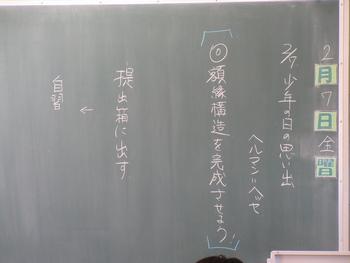 2月7日金曜
2/7 少年の日の思い出
ヘルマン=ヘッセ
◎額縁構造を完成させよう!
提出箱に出す
↓
自習